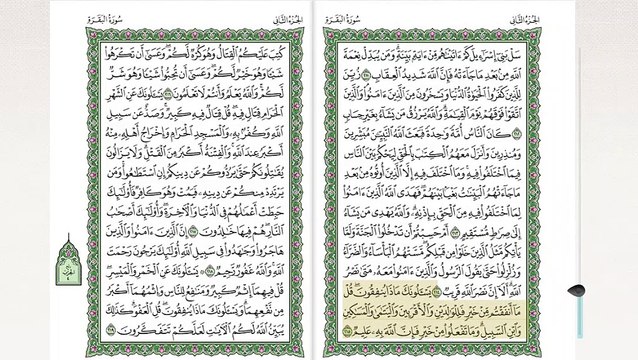 الجُزْءُ الثَّانِي سُورَةُ البَقَرَةِ
سَلْ بَنِىٓ إِسْرَٰٓءِيلَ كَمْ ءَاتَيْنَٰهُم مِّنْ ءَايَةٍۭ بَيِّنَةٍۗ وَمَن يُبَدِّلْ نِعْمَةَ
ٱللَّهِ مِنۢ بَعْدِ مَا جَآءَتْهُ فَإِنَّ ٱللَّهَ شَدِيدُ ٱلْعِقَابِ ٢١١ زُيِّنَ
لِلَّذِينَ كَفَرُوا۟ ٱلْحَيَوٰةُ ٱلدُّنْيَا وَيَسْخَرُونَ مِنَ ٱلَّذِينَ ءَامَنُوا۟ۘ وَٱلَّذِينَ
ٱتَّقَوْا۟ فَوْقَهُمْ يَوْمَ ٱلْقِيَٰمَةِۗ وَٱللَّهُ يَرْزُقُ مَن يَشَآءُ بِغَيْرِ حِسَابٍ
٢١٢ كَانَ ٱلنَّاسُ أُمَّةً وَٰحِدَةً فَبَعَثَ ٱللَّهُ ٱلنَّبِيِّۦنَ مُبَشِّرِينَ
وَمُنذِرِينَ وَأَنزَلَ مَعَهُمُ ٱلْكِتَٰبَ بِٱلْحَقِّ لِيَحْكُمَ بَيْنَ ٱلنَّاسِ
فِيمَا ٱخْتَلَفُوا۟ فِيهِۚ وَمَا ٱخْتَلَفَ فِيهِ إِلَّا ٱلَّذِينَ أُوتُوهُ مِنۢ بَعْدِ
مَا جَآءَتْهُمُ ٱلْبَيِّنَٰتُ بَغْيًۢا بَيْنَهُمْۖ فَهَدَى ٱللَّهُ ٱلَّذِينَ ءَامَنُوا۟
لِمَا ٱخْتَلَفُوا۟ فِيهِ مِنَ ٱلْحَقِّ بِإِذْنِهِۦۗ وَٱللَّهُ يَهْدِى مَن يَشَآءُ
إِلَىٰ صِرَٰطٍ مُّسْتَقِيمٍ ٢١٣ أَمْ حَسِبْتُمْ أَن تَدْخُلُوا۟ ٱلْجَنَّةَ وَلَمَّا
يَأْتِكُم مَّثَلُ ٱلَّذِينَ خَلَوْا۟ مِن قَبْلِكُمۖ مَّسَّتْهُمُ ٱلْبَأْسَآءُ وَٱلضَّرَّآءُ
وَزُلْزِلُوا۟ حَتَّىٰ يَقُولَ ٱلرَّسُولُ وَٱلَّذِينَ ءَامَنُوا۟ مَعَهُۥ مَتَىٰ نَصْرُ
ٱللَّهِۗ أَلَآ إِنَّ نَصْرَ ٱللَّهِ قَرِيبٌ ٢١٤ يَسْـَٔلُونَكَ مَاذَا يُنفِقُونَۖ قُلْ
مَآ أَنفَقْتُم مِّنْ خَيْرٍ فَلِلْوَٰلِدَيْنِ وَٱلْأَقْرَبِينَ وَٱلْيَتَٰمَىٰ وَٱلْمَسَٰكِينِ
وَٱبْنِ ٱلسَّبِيلِۗ وَمَا تَفْعَلُوا۟ مِنْ خَيْرٍ فَإِنَّ ٱللَّهَ بِهِۦ عَلِيمٌ ٢١٥
الجُزْءُ الثَّانِي سُورَةُ البَقَرَةِ
كُتِبَ عَلَيْكُمُ ٱلْقِتَالُ وَهُوَ كُرْهٌ لَّكُمْۖ وَعَسَىٰٓ أَن تَكْرَهُوا۟
شَيْـًٔا وَهُوَ خَيْرٌ لَّكُمْۖ وَعَسَىٰٓ أَن تُحِبُّوا۟ شَيْـًٔا وَهُوَ شَرٌّ
لَّكُمْۗ وَٱللَّهُ يَعْلَمُ وَأَنتُمْ لَا تَعْلَمُونَ ٢١٦ يَسْـَٔلُونَكَ عَنِ ٱلشَّهْرِ
ٱلْحَرَامِ قِتَالٍ فِيهِۖ قُلْ قِتَالٌ فِيهِ كَبِيرٌۖ وَصَدٌّ عَن سَبِيلِ
ٱللَّهِ وَكُفْرٌۢ بِهِۦ وَٱلْمَسْجِدِ ٱلْحَرَامِ وَإِخْرَاجُ أَهْلِهِۦ مِنْهُ
أَكْبَرُ عِندَ ٱللَّهِۚ وَٱلْفِتْنَةُ أَكْبَرُ مِنَ ٱلْقَتْلِۗ وَلَا يَزَالُونَ
يُقَٰتِلُونَكُمْ حَتَّىٰ يَرُدُّوكُمْ عَن دِينِكُمْ إِنِ ٱسْتَطَٰعُوا۟ۚ وَمَن
يَرْتَدِدْ مِنكُمْ عَن دِينِهِۦ فَيَمُتْ وَهُوَ كَافِرٌ فَأُو۟لَٰٓئِكَ
حَبِطَتْ أَعْمَٰلُهُمْ فِى ٱلدُّنْيَا وَٱلْـَٔاخِرَةِۖ وَأُو۟لَٰٓئِكَ أَصْحَٰبُ
ٱلنَّارِۖ هُمْ فِيهَا خَٰلِدُونَ ٢١٧ إِنَّ ٱلَّذِينَ ءَامَنُوا۟ وَٱلَّذِينَ
هَاجَرُوا۟ وَجَٰهَدُوا۟ فِى سَبِيلِ ٱللَّهِ أُو۟لَٰٓئِكَ يَرْجُونَ رَحْمَتَ
ٱللَّهِۚ وَٱللَّهُ غَفُورٌ رَّحِيمٌ ٢١٨ يَسْـَٔلُونَكَ عَنِ ٱلْخَمْرِ وَٱلْمَيْسِرِۖ
قُلْ فِيهِمَآ إِثْمٌ كَبِيرٌ وَمَنَٰفِعُ لِلنَّاسِ وَإِثْمُهُمَآ أَكْبَرُ
مِن نَّفْعِهِمَاۗ وَيَسْـَٔلُونَكَ مَاذَا يُنفِقُونَ قُلِ ٱلْعَفْوَۗ كَذَٰلِكَ
يُبَيِّنُ ٱللَّهُ لَكُمُ ٱلْـَٔايَٰتِ لَعَلَّكُمْ تَتَفَكَّرُونَ ٢١٩